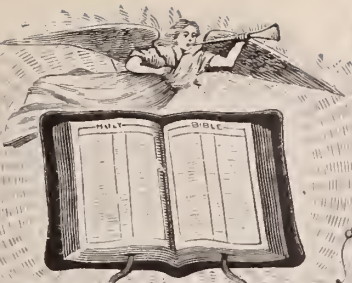 HOLY BIBLE